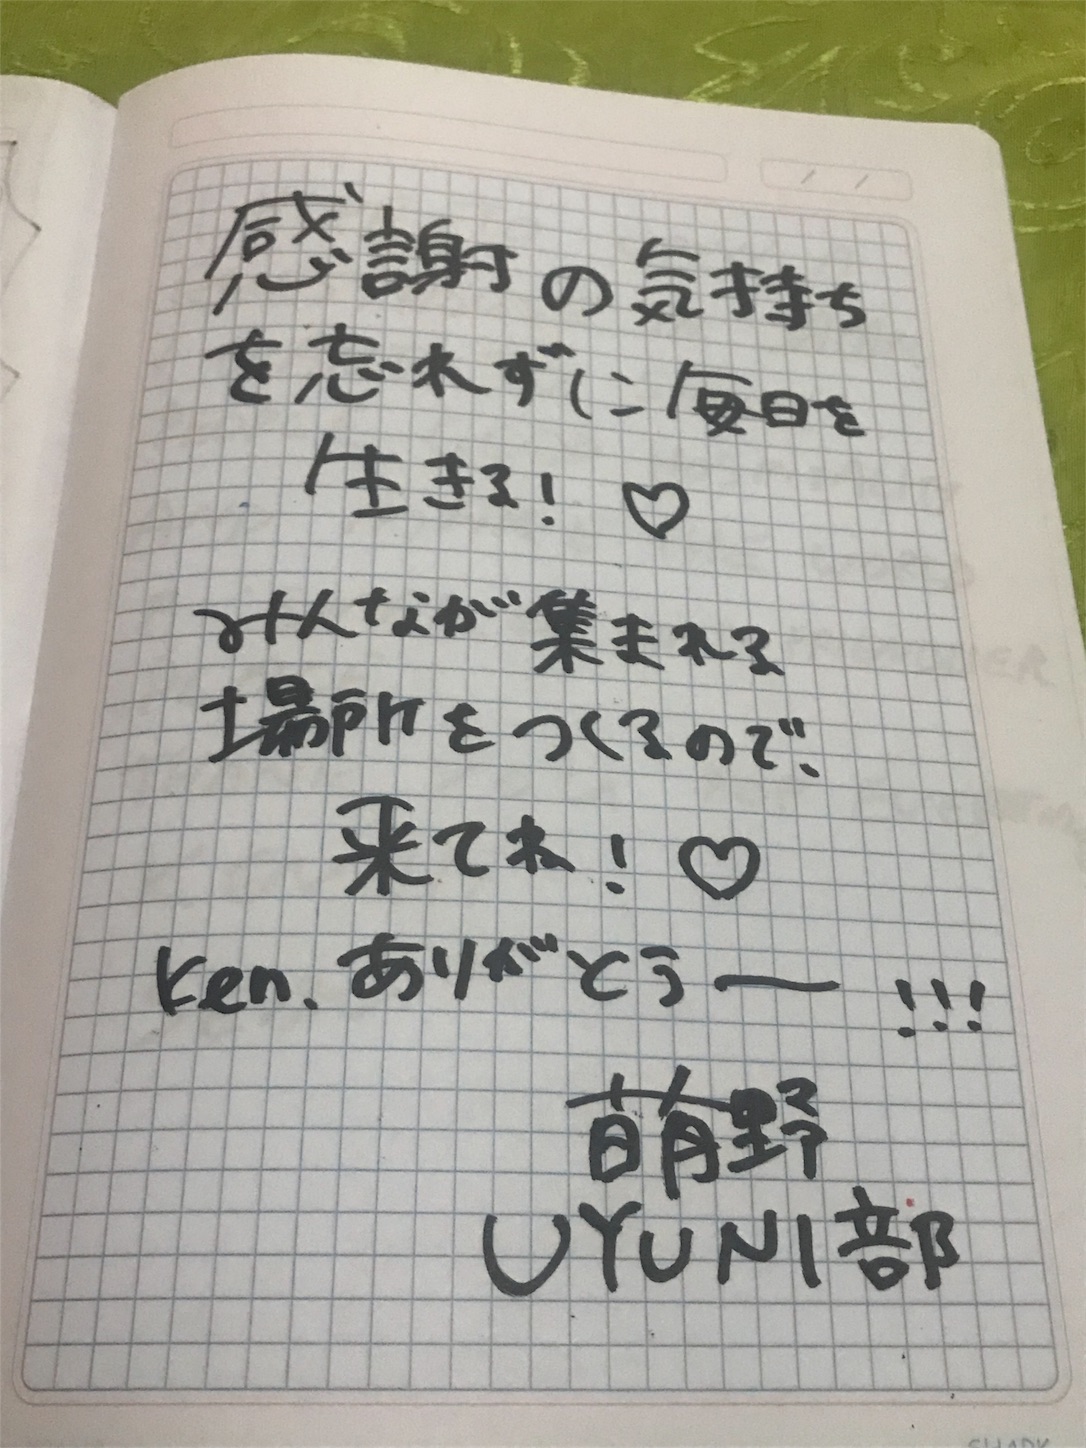 感謝の気持ち
を忘れずに毎日を
生きる! ♡
みんなが集まれる
場所をつくるので、
来てね! ♡
Ken、ありがとうー!!!
萌野
UYUNI部